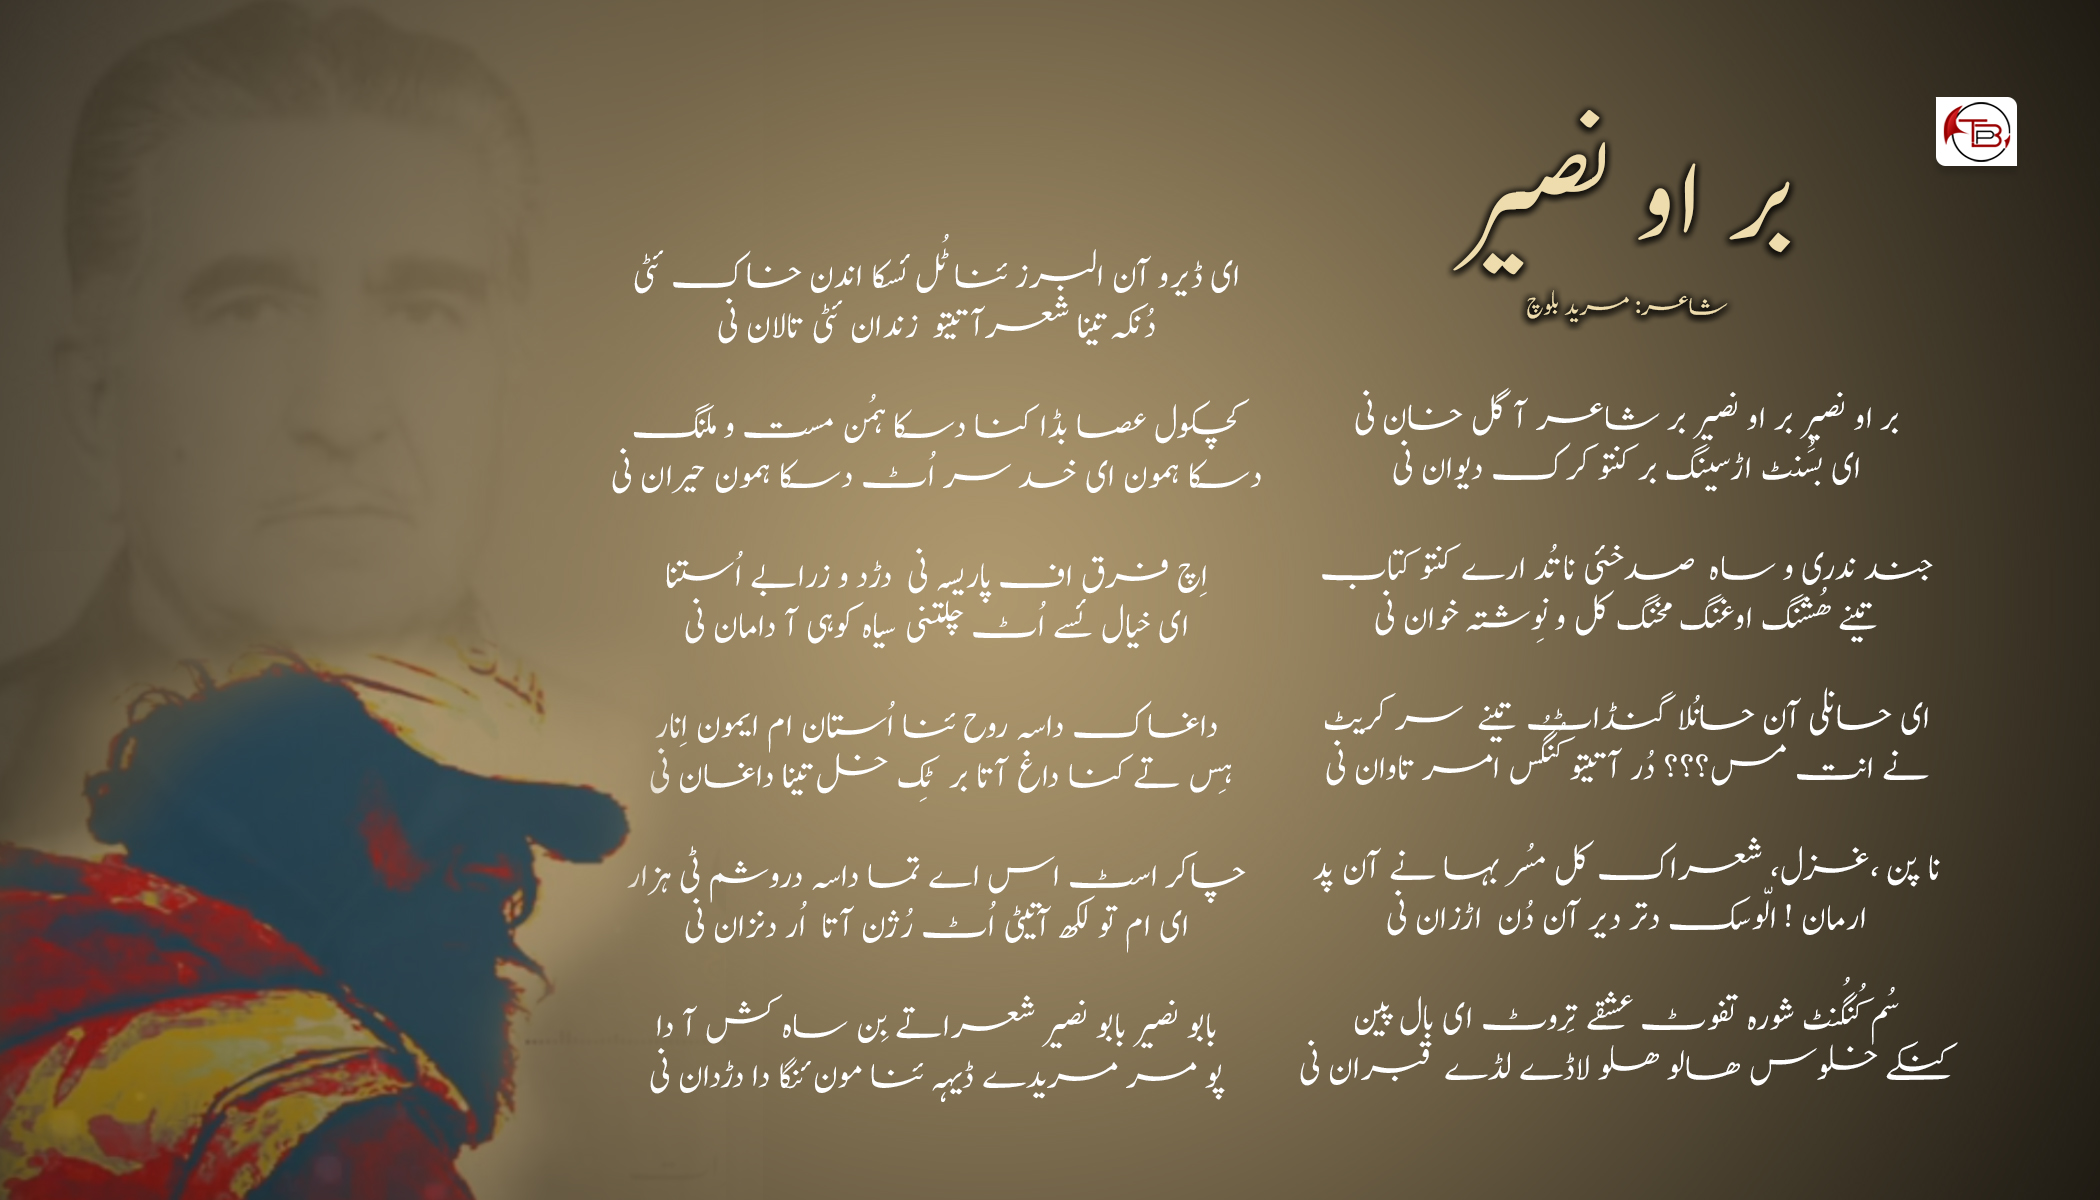 TBP
بر او نصیر
شاعر: مرید بلوچ
بر او نصیر بر او نصیر بر شاعر آ گل خان نی
ای بسُنٹ اڑسینگ بر کنتو کرک دیوان نی
جند ندری و ساہ صدخئی نا تُد ارے کنتو کتاب
تینے ھُشنگ اوغنگ مخنگ کل و نِوشتہ خوان نی
ای حانلی آن حانُلا گنڈاٹ تینے سر کریٹ
نے انت مس؟؟؟ دُر آتیتو کنُگس امر تاوان نی
نا پن ،غزل، شعراک کل مسُر بہا نے آن پد
ارمان ! الّوسک دتر دیر آن دُن اڑزان نی
سُم کُنگُنٹ شورہ تفوٹ عشقے تِروٹ ای بال پین
کنکے خلوس ھالو ھلو لاڈے لڈے قبران نی
ای ڈیرو آن البرز ئنا ٹُل ئسکا اندن خاک ئٹی
دُنکہ تینا شعر آتیتو زندان ئٹی تالان نی
کچکول عصا بڈا کنا دسکا ہمُن مست و ملنگ
دسکا ہمون ای خد سر اُٹ دسکا ہمون حیران نی
اِچ فرق اف پاریسہ نی دڑد و زرابے اُستنا
ای خیال ئسے اُٹ چلتنی سیاہ کوہی آ دامان نی
داغاک داسہ روح ئنا اُستان ام ایمون اِنار
ہِس تے کنا داغ آتا بر ٹکِ خل تینا داغان نی
چاکر اسٹ اس اے تما داسہ دروشم ٹی ہزار
ای ام تو لکھ آتیٹی اُٹ رُژن آتا اُر دنزان نی
بابو نصیر بابو نصیر شعراتے بِن ساہ کش آ دا
پو مر مریدے ڈیہہ ئنا مون ئنگا دا دڑدان نی